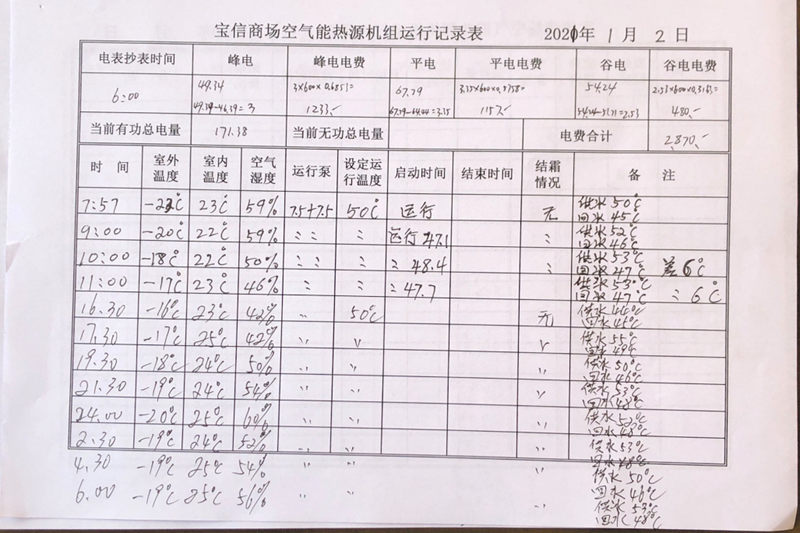 宝信商场空气能热源机组运行记录表 2021年 1月 2日
电表抄表时间 峰电 峰电电费 平电 平电电费 谷电 谷电电费
6:00 49.34 3×600×0.6851= 67.79 3.75×600×0.5758= 54.24 2.53×600×0.3163=
49.34-46.39=3 1233.- 67.79-64.04=3.75 1157.- 54.24-51.71=2.53 480.-
当前有功总电量 171.38 当前无功总电量 电费合计 2,870.-
时间 室外温度 室内温度 空气湿度 运行泵 设定运行温度 启动时间 结束时间 结霜情况 备注
7:57 -22℃ 23℃ 59% 7.5+7.5 50℃ 运行 无 供水50℃
回水45℃
9:00 -20℃ 22℃ 59% 〃 〃 运行47.1 〃 供水52℃
回水46℃
10:00 -18℃ 22℃ 50% 〃 〃 〃48.4 〃 供水53℃
回水47℃ 差6℃
11:00 -17℃ 23℃ 46% 〃 〃 〃47.7 供水53℃
回水47℃ 〃6℃
16.30 -16℃ 23℃ 42% 〃 50℃ 无 供水44℃
回水45℃
17.30 -17℃ 25℃ 42% 〃 〃 〃 供水55℃
回水49℃
19.30 -18℃ 24℃ 50% 〃 〃 〃 供水50℃
回水46℃
21.30 -19℃ 24℃ 54% 〃 〃 〃 供水53℃
回水48℃
24.00 -20℃ 25℃ 60% 〃 〃 〃 供水52℃
回水48℃
2.30 -19℃ 24℃ 52% 〃 〃 〃 供水53℃
回水48℃
4.30 -19℃ 25℃ 54% 〃 〃 〃 供水50℃
回水46℃
6.00 -19℃ 25℃ 56% 〃 〃 〃 供水53℃
回水48℃